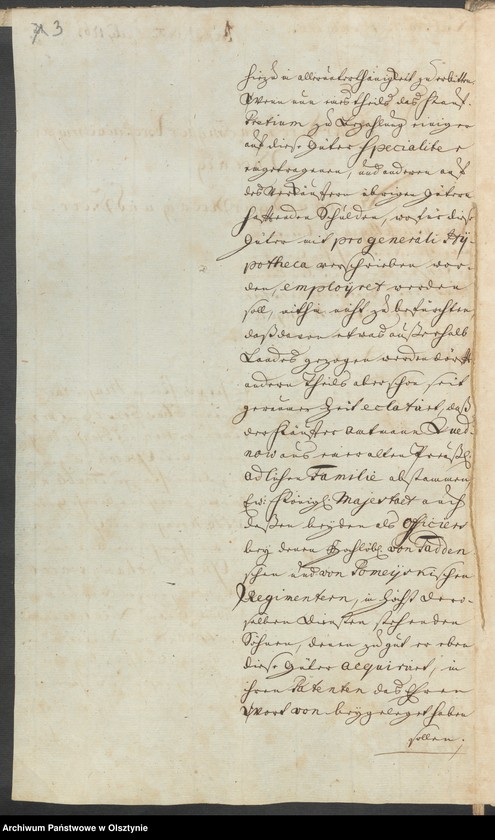 3
hiezu in allerunterthänigkeit zu erbitten.
Wenn nun eines theils das Kauf-
Pretium zu Bezahlung einiger
auf diese Güter specialiter
eingetragenen, und anderen auf
des Verkäufern übrigen Gütern
haftenden Schulden, wofür diese
Güter mit pro generali Hy-
potheca verschrieben wor-
den, employret werden
soll, mithin nicht zu befürchten
daß davon etwas außerhalb
Landes gezogen werden dörfte
andern Theils aber schon seit
geraumer Zeit eclatiret, daß
der Käufer Amtmann Qued-
now aus einer alten Preußl.
Adlichen Familie abstammen
Ew: Königl: Majestaet auch
deßen beyden als Officiers
bey denen Hochlöbl. von Tadden
schen und von Pomeÿskischen
Regimentern, in Höchst Dero-
selben Diensten stehenden
Söhnen, denen zu gut er eben
diese Güter acquiriret, in
ihren Patenten das Ehren
Wort von beygeleget haben
sollen,
Archiwum Państwowe w Olsztynie